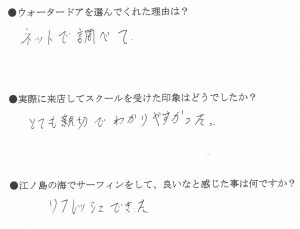 ●ウォータードアを選んでくれた理由は？
ネットで調べて
●実際に来店してスクールを受けた印象はどうでしたか？
とても親切でわかりやすかった。
●江ノ島の海でサーフィンをして、良いなと感じた事は何ですか？
リフレッシュできた